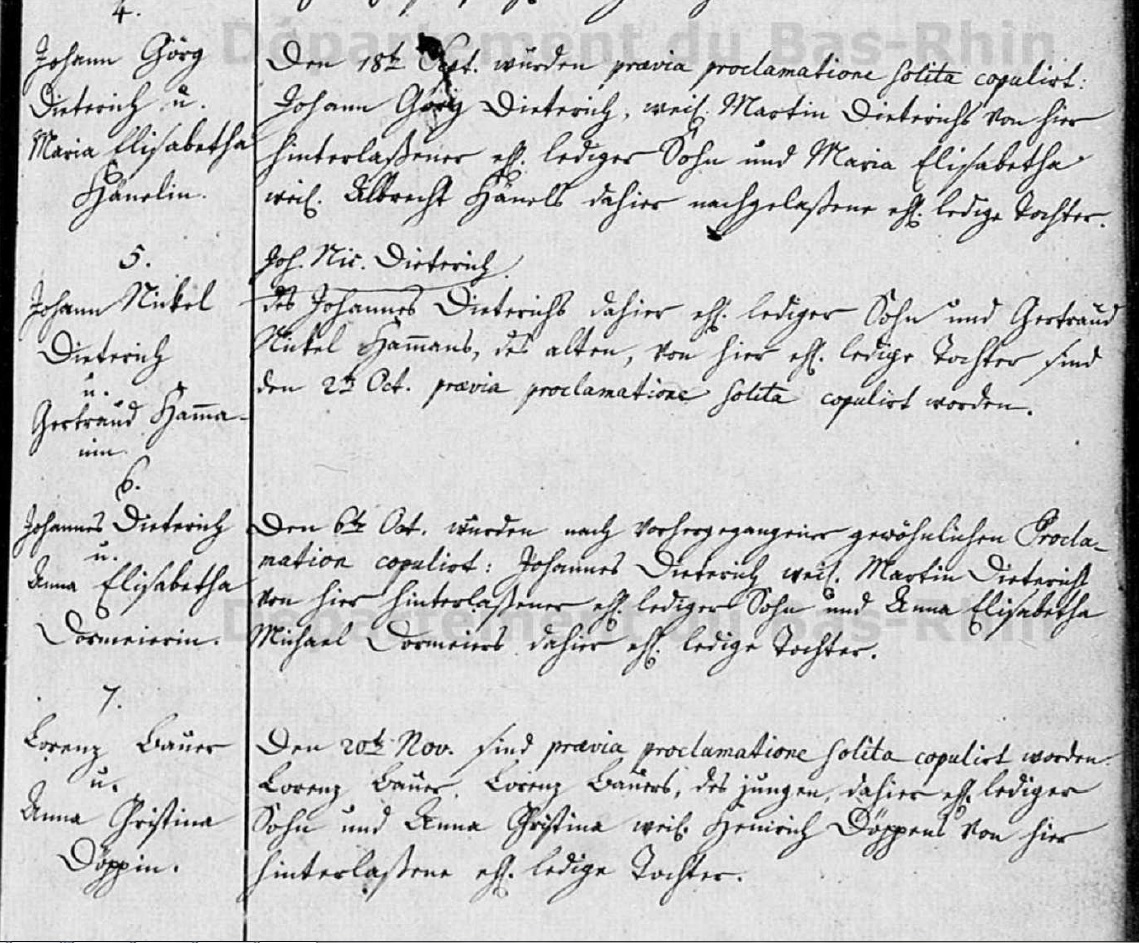 4.
Johann Görg
Dieterich u.
Maria Elisabetha
Hänelin.
Den 18t. Sept. wurden praevia proclamatione solita copulirt:
Johann Görg Dieterich, weil. Martin Dieterichs von hier
hinterlaßener ehl. lediger Sohn und Maria Elisabetha
weil. Albrecht Hänels dahier nachgelaßene ehl. ledige Tochter.
5.
Johann Nickel
Dieterich
u.
Gertraud Ham̅a-
nin.
Joh. Nic. Dieterich.
des Johannes Dieterichs dahier ehl. lediger Sohn und Gertraud
Nickel Ham̅ans, des alten, von hier ehl. ledige Tochter sind
den 2t. Oct. praevia proclamatione solita copulirt worden.
6.
Johannes Dieterich
u.
Anna Elisabetha
Dormeierin.
Den 6t. Oct. wurden nach vorhergegangener gewöhnlichen Procla-
mation copulirt: Johannes Dieterich weil. Martin Dieterichs
von hier hinterlaßener ehl. lediger Sohn und Anna Elisabetha
Michael Dormeiers dahier ehl. ledige Tochter.
7.
Lorenz Bauer
u.
Anna Christina
Döppin.
Den 20t. Nov. sind praevia proclamatione solita copulirt worden.
Lorenz Bauer, Lorenz Bauers, des jungen, dahier ehl. lediger
Sohn und Anna Christina weil. Heinrich Döppens von hier
hinterlaßene ehl. ledige Tochter.
Département du Bas-Rhin
Département du Bas-Rhin